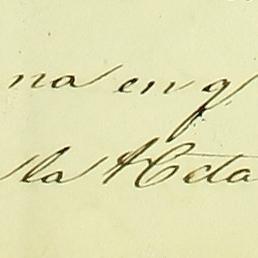 na en q
la Acta